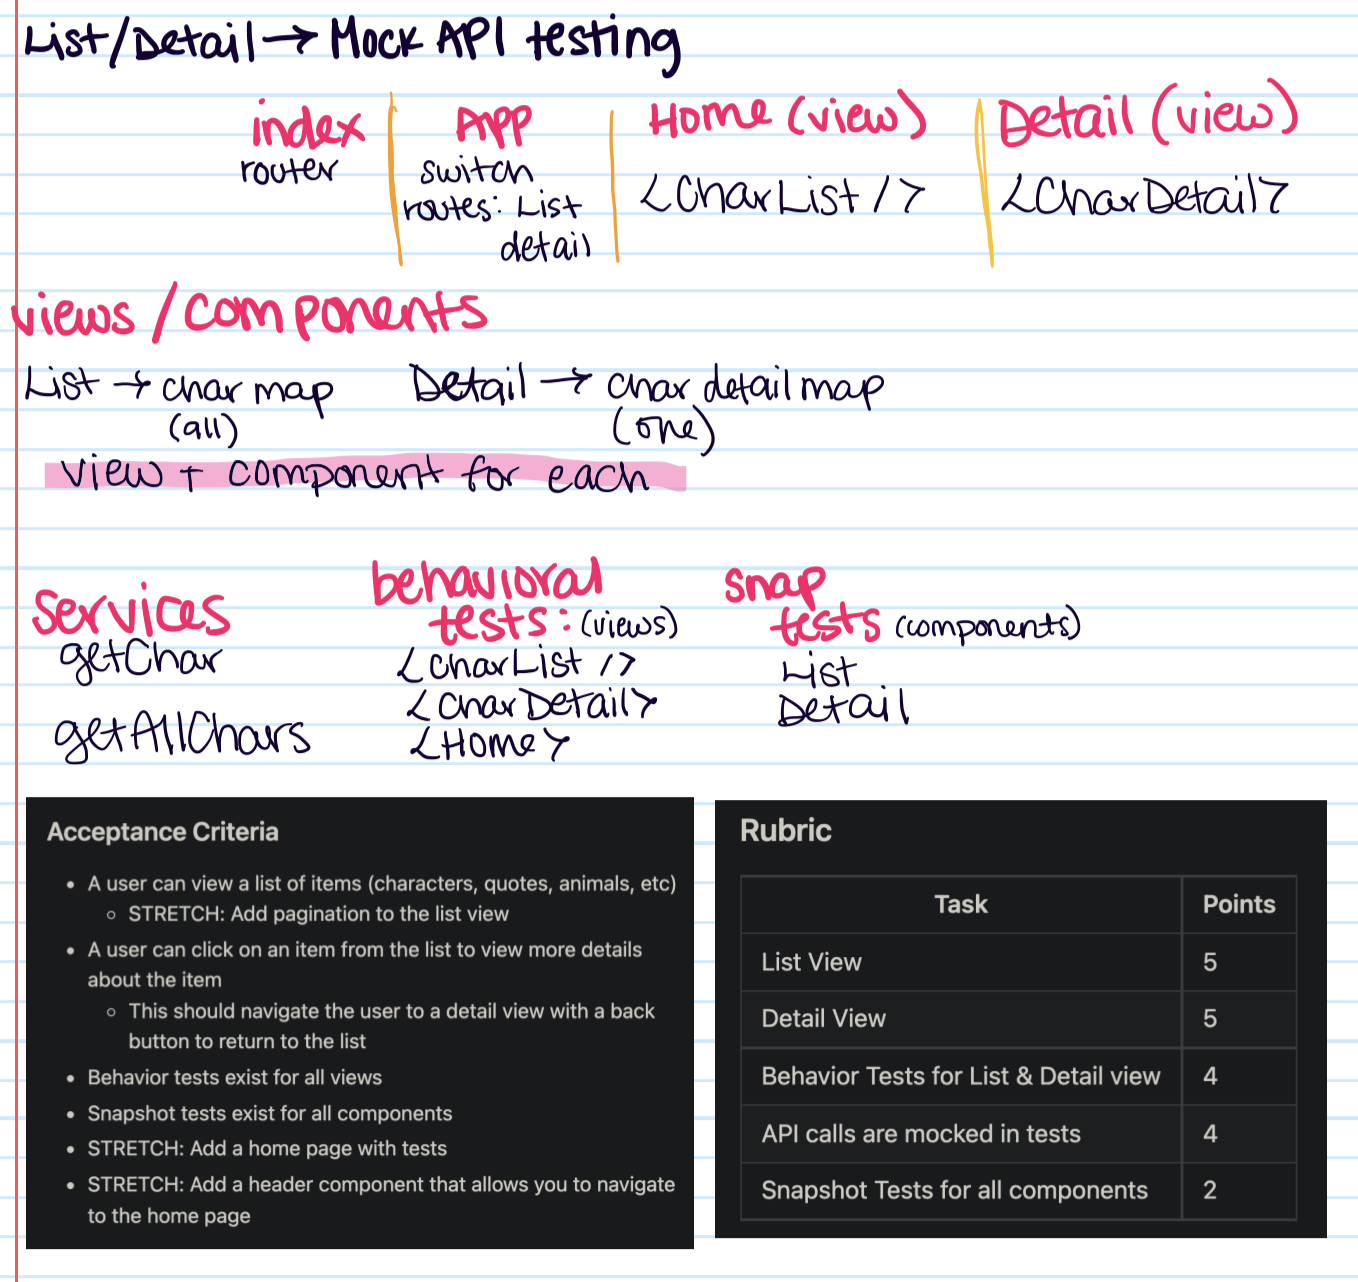 List/Detail → Mock API testing
index
router
App
switch
routes: List
detail
Home (view)
<CharList />
Detail (view)
<CharDetail>
views / components
List → char map
(all)
Detail → char detail map
(one)
view + component for each
services
getChar
getAllChars
behavioral
tests: (views)
<CharList />
<CharDetail>
<Home>
snap
tests (components)
List
Detail
Acceptance Criteria
• A user can view a list of items (characters, quotes, animals, etc)
○ STRETCH: Add pagination to the list view
• A user can click on an item from the list to view more details
about the item
○ This should navigate the user to a detail view with a back
button to return to the list
• Behavior tests exist for all views
• Snapshot tests exist for all components
• STRETCH: Add a home page with tests
• STRETCH: Add a header component that allows you to navigate
to the home page
Rubric
Task Points
List View 5
Detail View 5
Behavior Tests for List & Detail view 4
API calls are mocked in tests 4
Snapshot Tests for all components 2